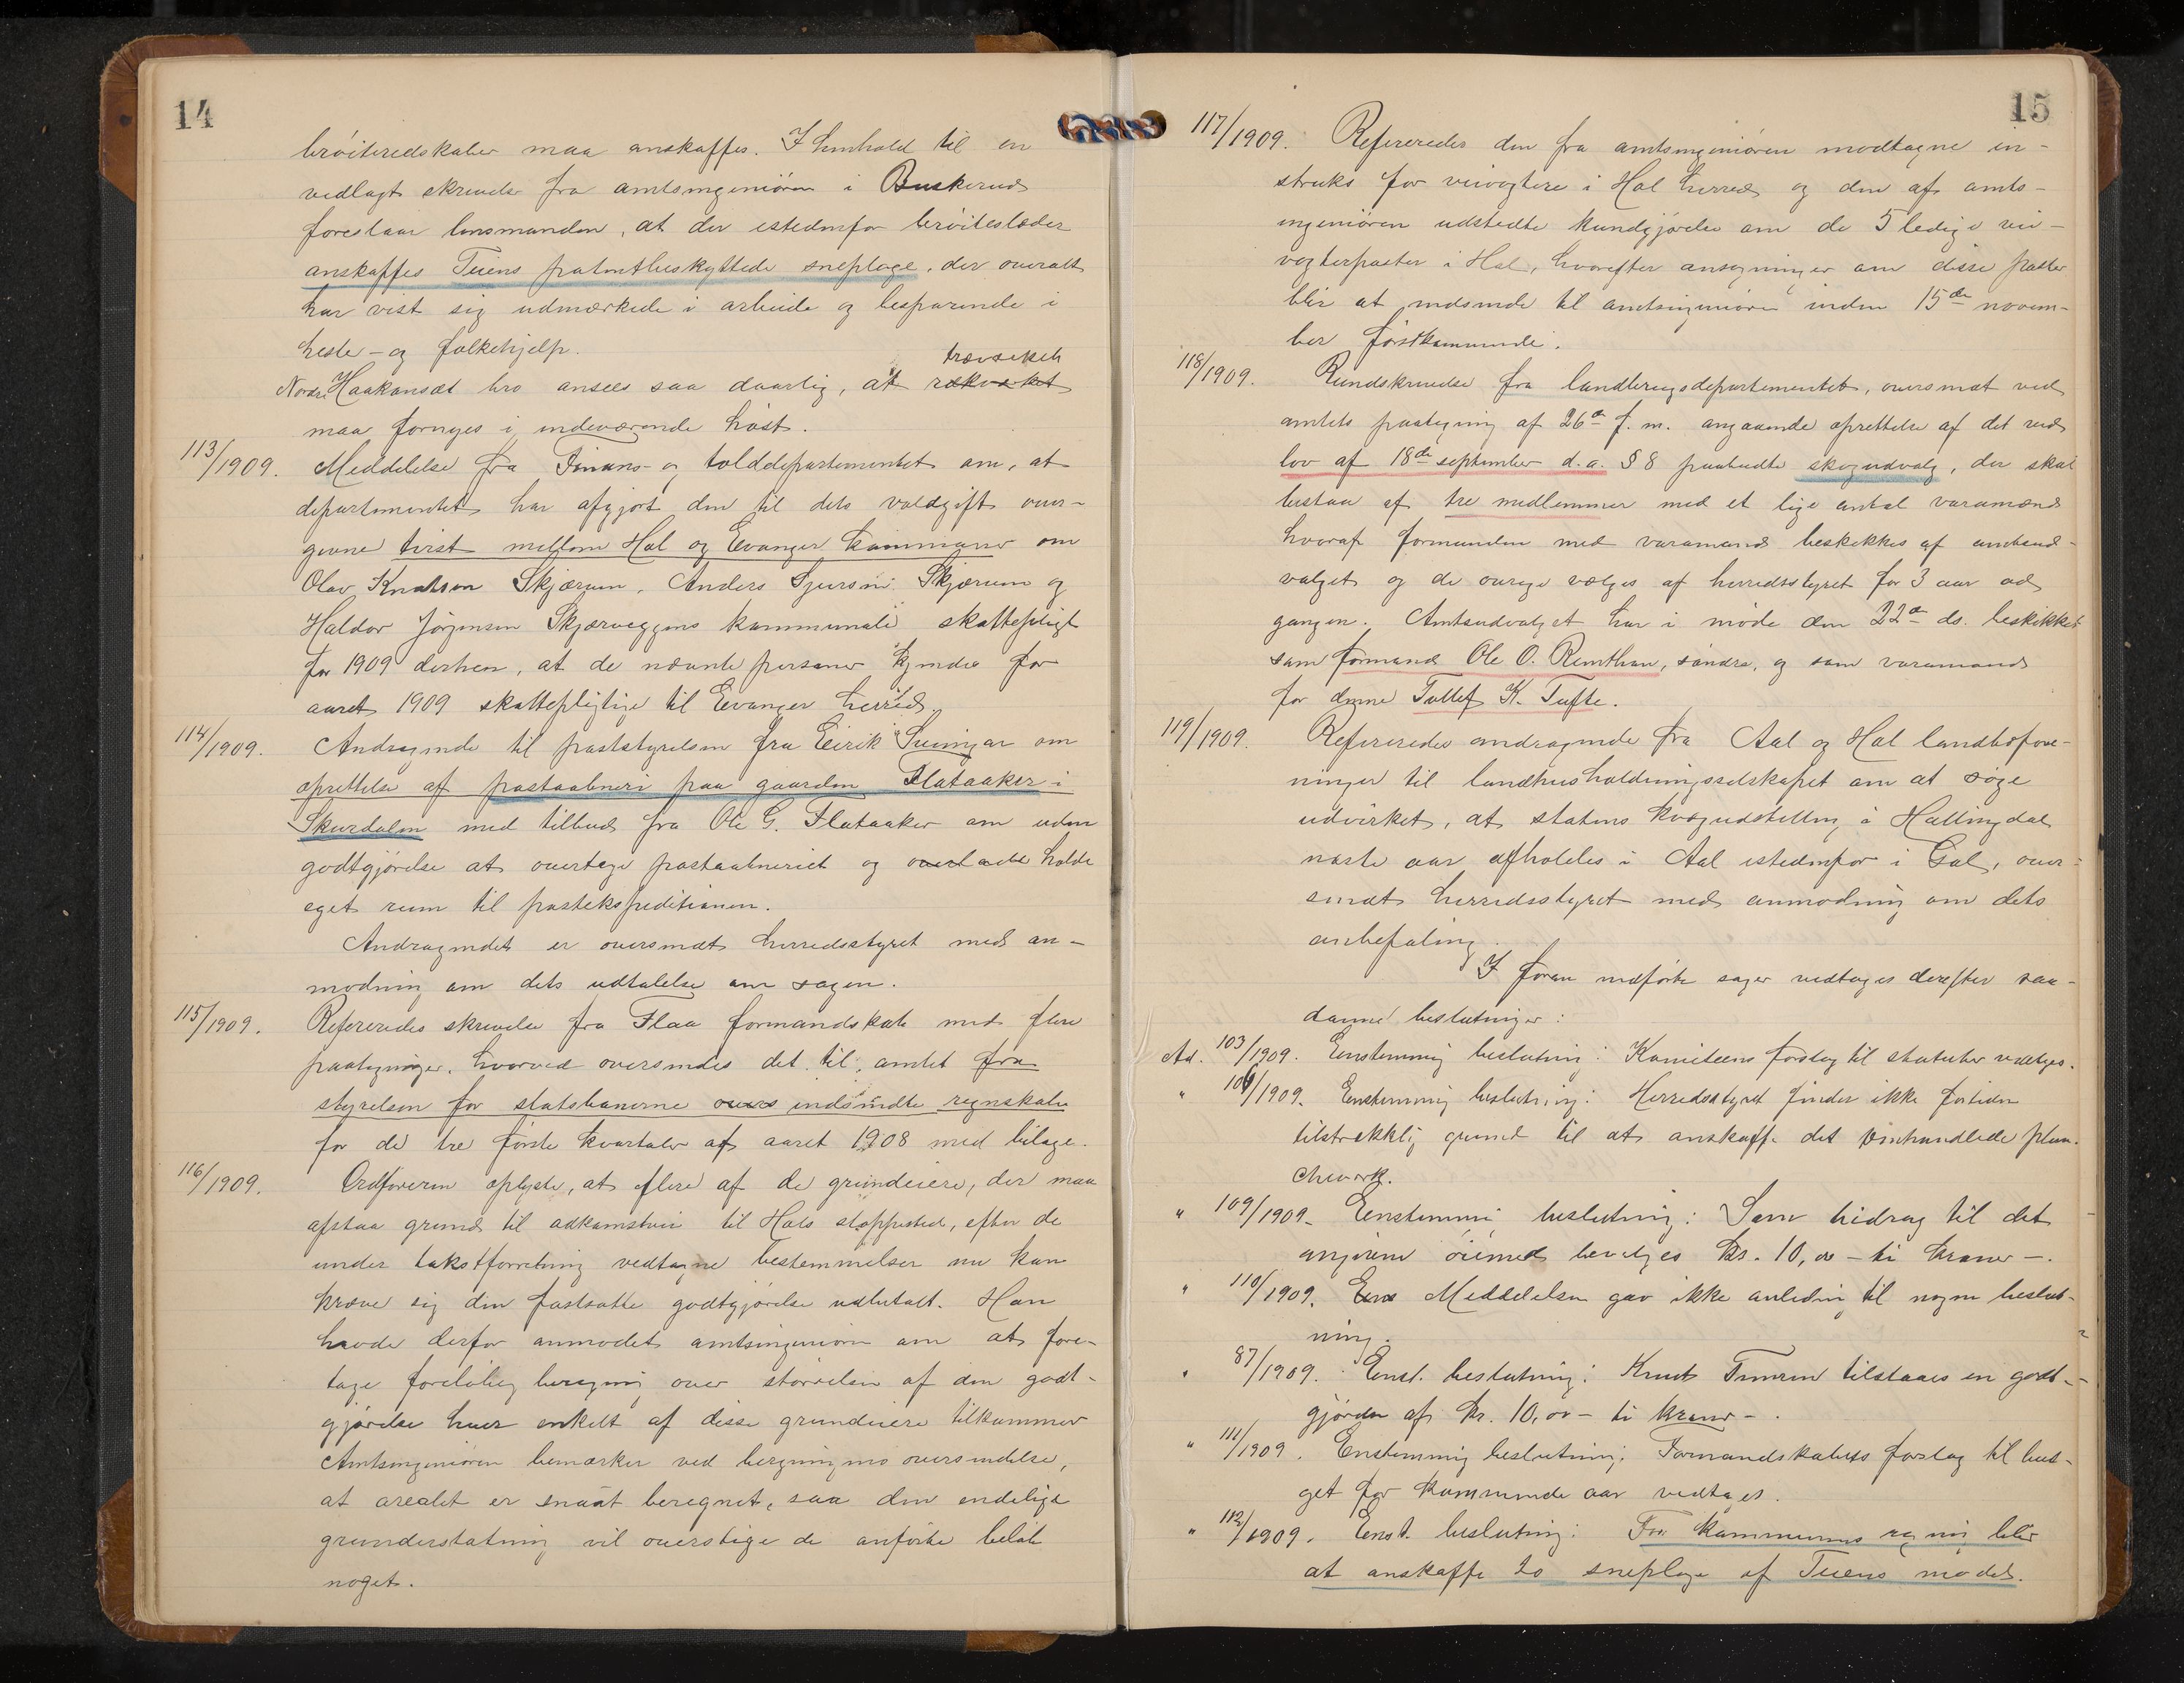 14
brøiteredskaber maa anskaffes. I henhold til en
vedlagt skrivelse fra amtsingeniøren i Buskerud
foreslaar lensmanden, at der istedenfor brøitesloder
anskaffes Tuens patentbeskyttede sneploge, der overalt
har vist sig udmærkede i arbeide og besparende i
heste- og folkehjelp.
trævirket
Nordre Haakonsæt bro ansees saa daarlig, at rækværket
maa fornyes i indeværende høst.
113/1909. Meddelelse fra Finans- og tolddepartementet om, at
departementet har afgjort den til dets voldgift over-
givne tvist mellem Hol og Evanger kommuner om
Olav Knutsen Skjærum, Anders Sjursen Skjærum og
Haldor Jørgensen Skjærveggens kommunale skattepligt
for 1909 derhen, at de nævnte personer kjendes for
aaret 1909 skattepligtige til Evanger herred.
114/1909. Andragende til poststyrelsen fra Eirik Suningar om
oprettelse af postaabneri paa gaarden Flataaker i
Skurdalen med tilbud fra Ole G. Flataaker om uden
godtgjørelse at overtage postaabneriet og overlade holde
eget rum til postekspeditionen.
Andragendet er oversendt herredsstyret med an-
modning om dets udtalelse om sagen.
115/1909. Refereredes skrivelse fra Flaa formandskab med flere
paategninger, hvorved oversendes det til amtet fra
styrelsen for statsbanerne overs indsendte regnskaber
for de tre første kvartaler af aaret 1908 med bilage.
116/1909. Ordføreren oplyste, at flere af de grundeiere, der maa
afstaa grund til adkomstvei til Hols stoppested, efter de
under takstforretning vedtagne bestemmelser nu kan
kræve sig den fastsatte godtgjørelse udbetalt. Han
havde derfor anmodet amtsingeniøren om at fore-
tage foreløbig beregning over størrelsen af den godt-
gjørelse hver enkelt af disse grundeiere tilkommer
Amtsingeniøren bemærker ved beregningens oversendelse,
at arealet er snaut beregnet, saa den endelige
grunderstatning vil overstige de anførte beløb
noget.
15
117/1909. Refereredes den fra amtsingeniøren modtagne in-
struks for veivogtere i Hol herred og den af amts-
ingeniøren udstedte kundgjørelse om de 5 ledige vei-
vogterposter i Hol, hvorefter ansøgninger om disse poster
blir at indsende til amtsingeniøren inden 15de novem-
ber førstkommende.
118/1909. Rundskrivelse fra landbrugsdepartementet, oversendt ved
amtets paategning af 26de f. m. angaaende oprettelse af det ved
lov af 18de september d.a. § 8 paabudte skogudvalg, der skal
bestaa af tre medlemmer med et lige antal varamænd
hvoraf formanden med varamand beskikkes af amtsud-
valget og de øvrige vælges af herredsstyret for 3 aar ad
gangen. Amtsudvalget har i møde den 22de ds. beskikket
som formand Ole O. Remthun, søndre, og som varamand
for denne Tollef K. Tufte.
119/1909. Refereredes andragende fra Aal og Hol landbofore-
ninger til landhusholdningsselskapet om at søge
udvirket, at statens kvægudstilling i Hallingdal
næste aar afholdes i Aal istedenfor i Gol, over-
sendt herredsstyret med anmodning om dets
anbefaling.
I foran indførte sager vedtoges derefter saa-
danne beslutninger:
Ad. 103/1909. Enstemmig beslutning: Komiteens forslag til statuter vedtages.
" 106/1909. Enstemmig beslutning: Herredsstyret finder ikke fortiden
tilstrækkelig grund til at anskaffe det omhandlede plan-
cheverk.
" 109/1909. Eenstemmig beslutning: Som bidrag til det
angivne øiemed bevilges kr. 10,00 – ti kroner –.
" 110/1909. Ens Meddelelsen gav ikke anledning til nogen beslut-
ning.
" 87/1909. Eenst. beslutning: Knut Tunren tilstaaes en godt-
gjørelse af kr. 10,00 – ti kroner –.
" 111/1909. Enstemmig beslutning: Formandskabets forslag til bud-
get for kommende aar vedtages.
" 112/1909. Eenst. beslutning: For kommunens regning blir
at anskaffe 20 sneploge af Tuens model.